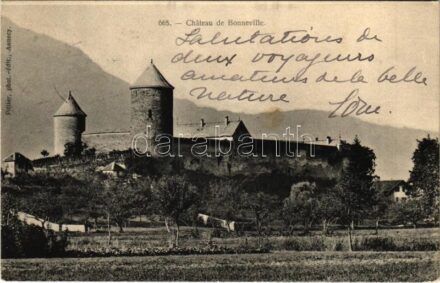 665. — Château de Bonneville.
Salutations de
deux voyageurs
amateurs de la belle
nature
Pittier, phot.-édit., Annecy.
darabanth